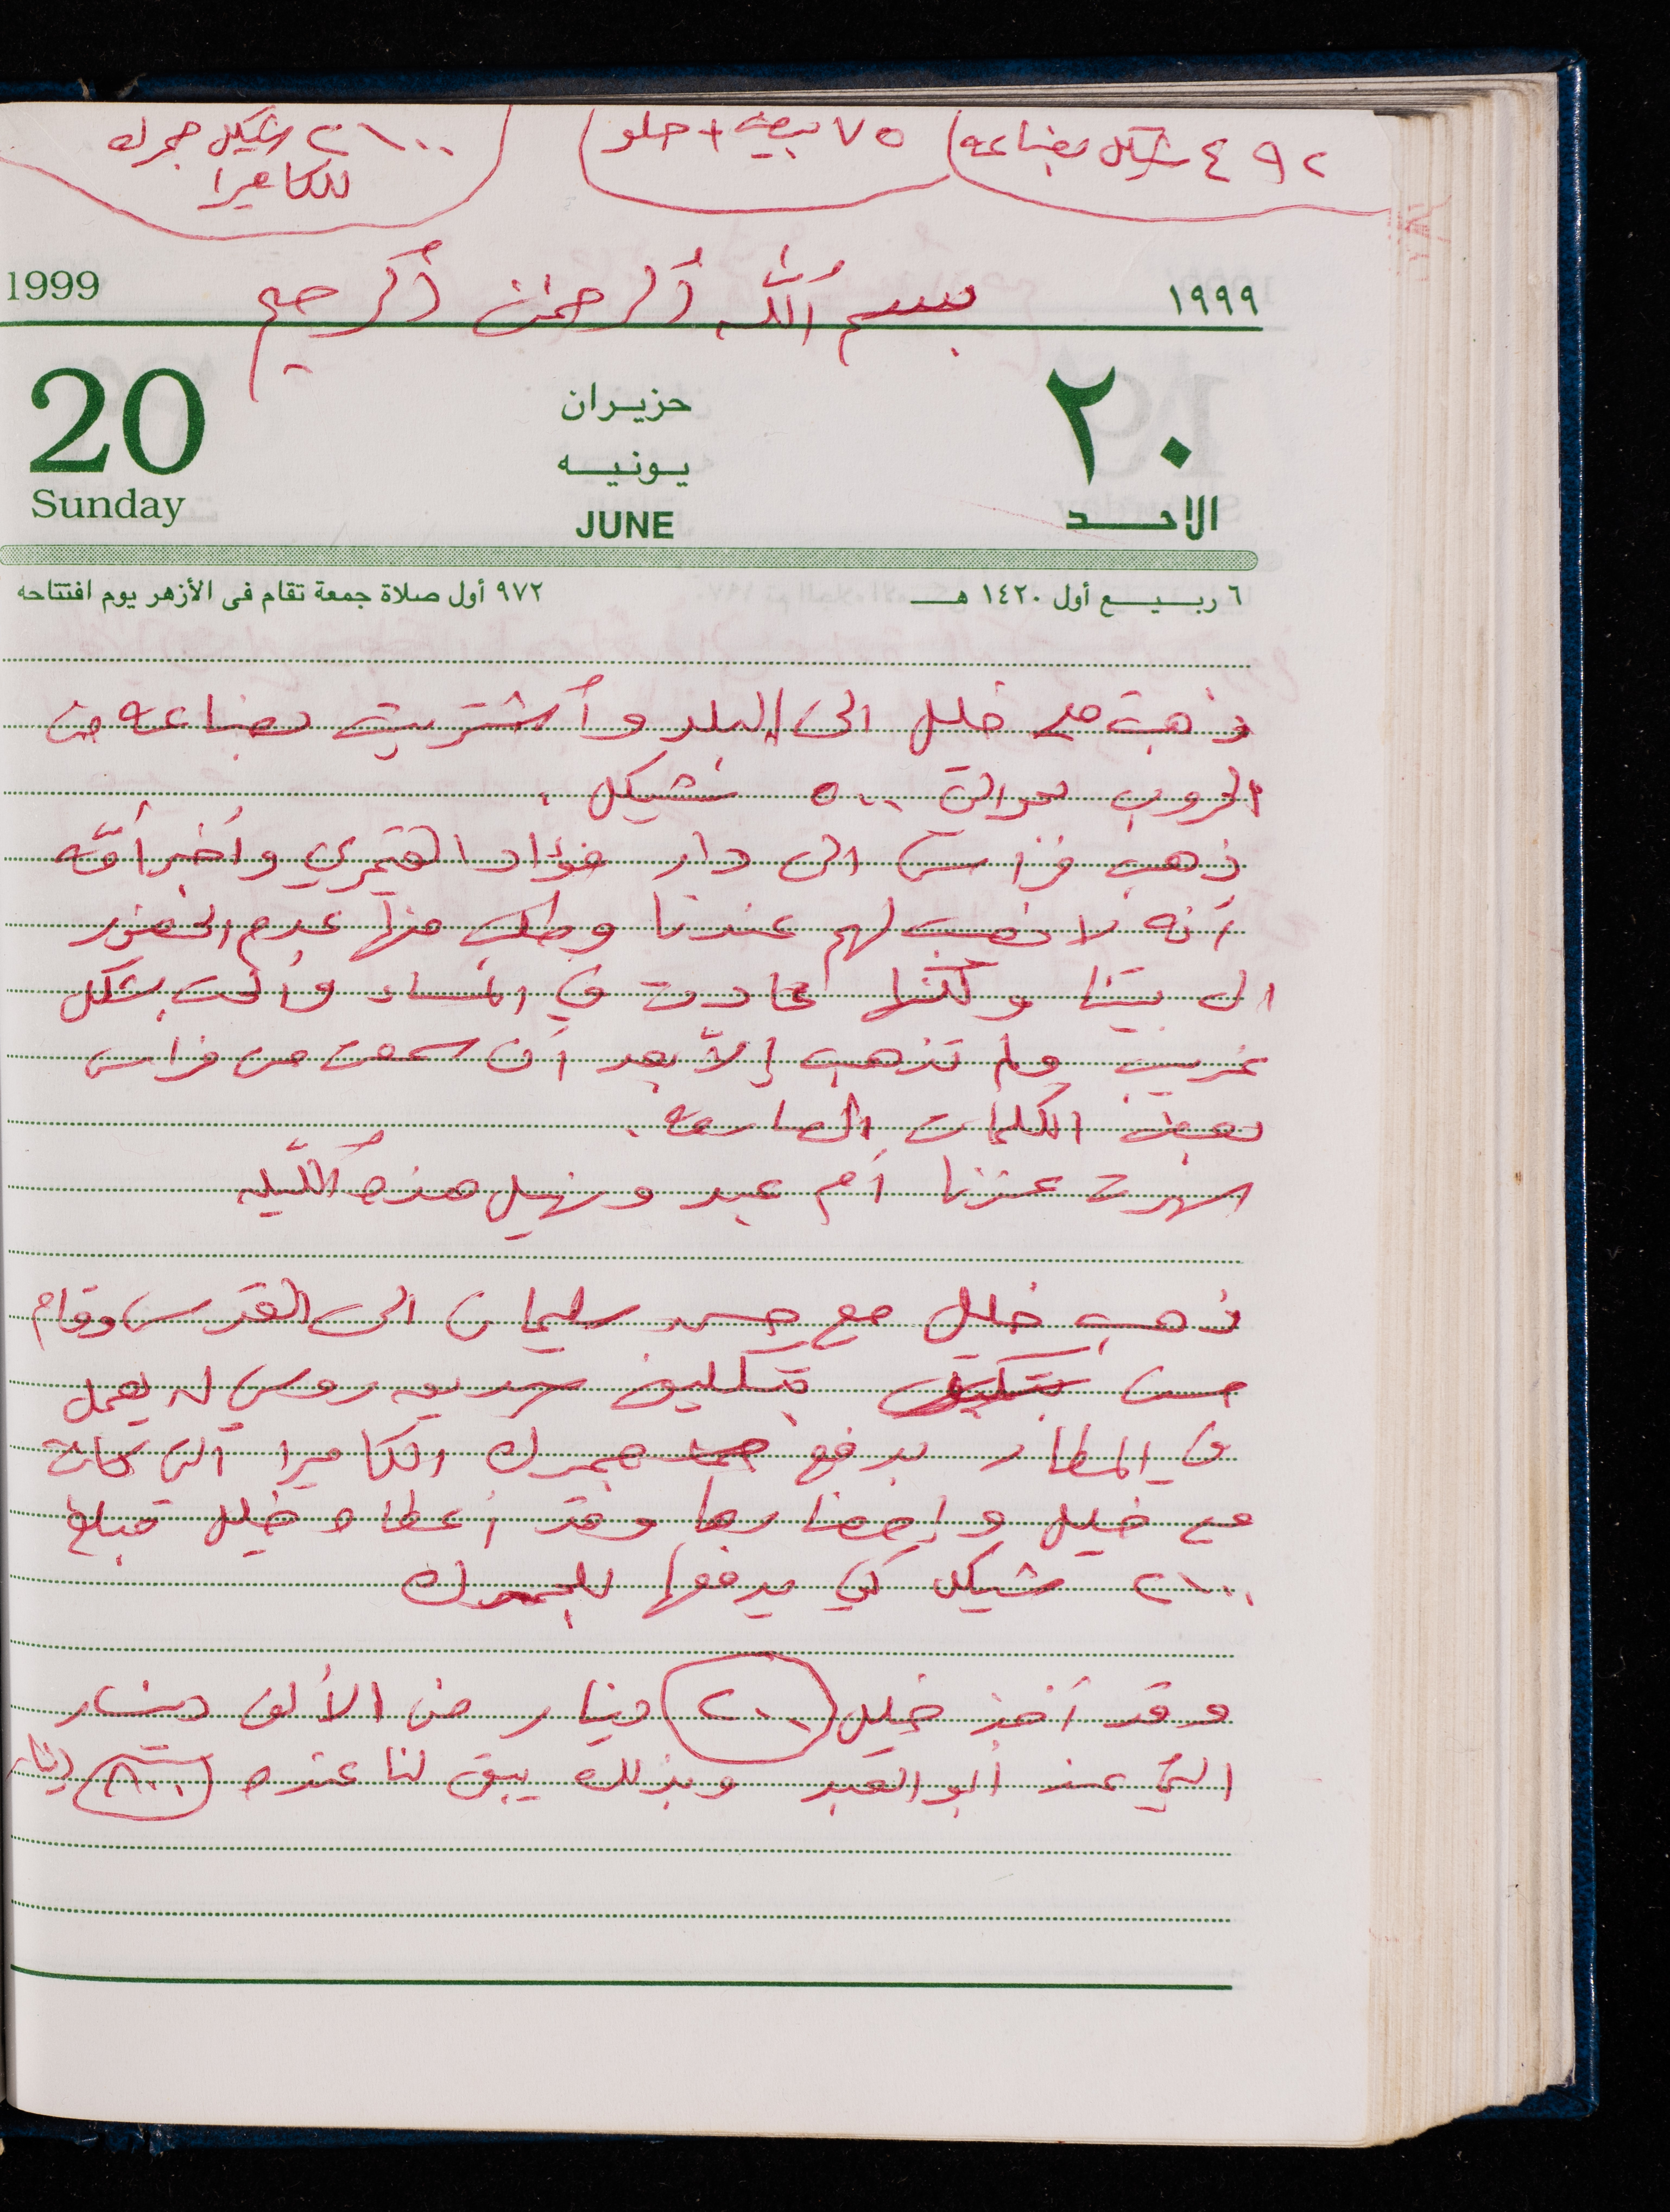 ٤٩٢ شيكل بضاعه
٧٥ بيعه + حلو
٢١٠٠ شيكل جمرك
للكاميرا
بسم الله الرحمن الرحيم
1999
١٩٩٩
20
حزيران
٢٠
يونيه
Sunday
JUNE
الاحد
٦ ربيع أول ١٤٢٠ هـ
٩٧٢ أول صلاة جمعة تقام فى الأزهر يوم افتتاحه
ذهبت مع خليل الى البلد وأشتريت بضاعه من
بحوالي ٥٠٠ شيكل .
ذهب فراس الى دار فؤاد القيمري وأخبر أمّه
أنه لا نصيب لهم عندنا وطلب منها عدم الحضور
الى بيتنا ولكنها عادت في المساء وألحت بشكل
غريب ولم تذهب إلاّ بعد أن سمعت من فراس
بعض الكلمات
سهرت عندنا أم عبد ونهيل هذه الليله
ذهب خليل مع حسن سليمان الى القدس وقام
حسن بتكليف بتكليف صديق روسي له يعمل
في المطار بدفع جمرك الكاميرا التي كانت
مع خليل وإحضارها وقد أعطاه خليل مبلغ
٢١٠٠ شيكل كي يدفعها للجمرك
وقد أخذ خليل ٢٠٠ دينار من الألف دينار
التي عند أبو العبد وبذلك يبقى لنا عنده ٨٠٠ دينار